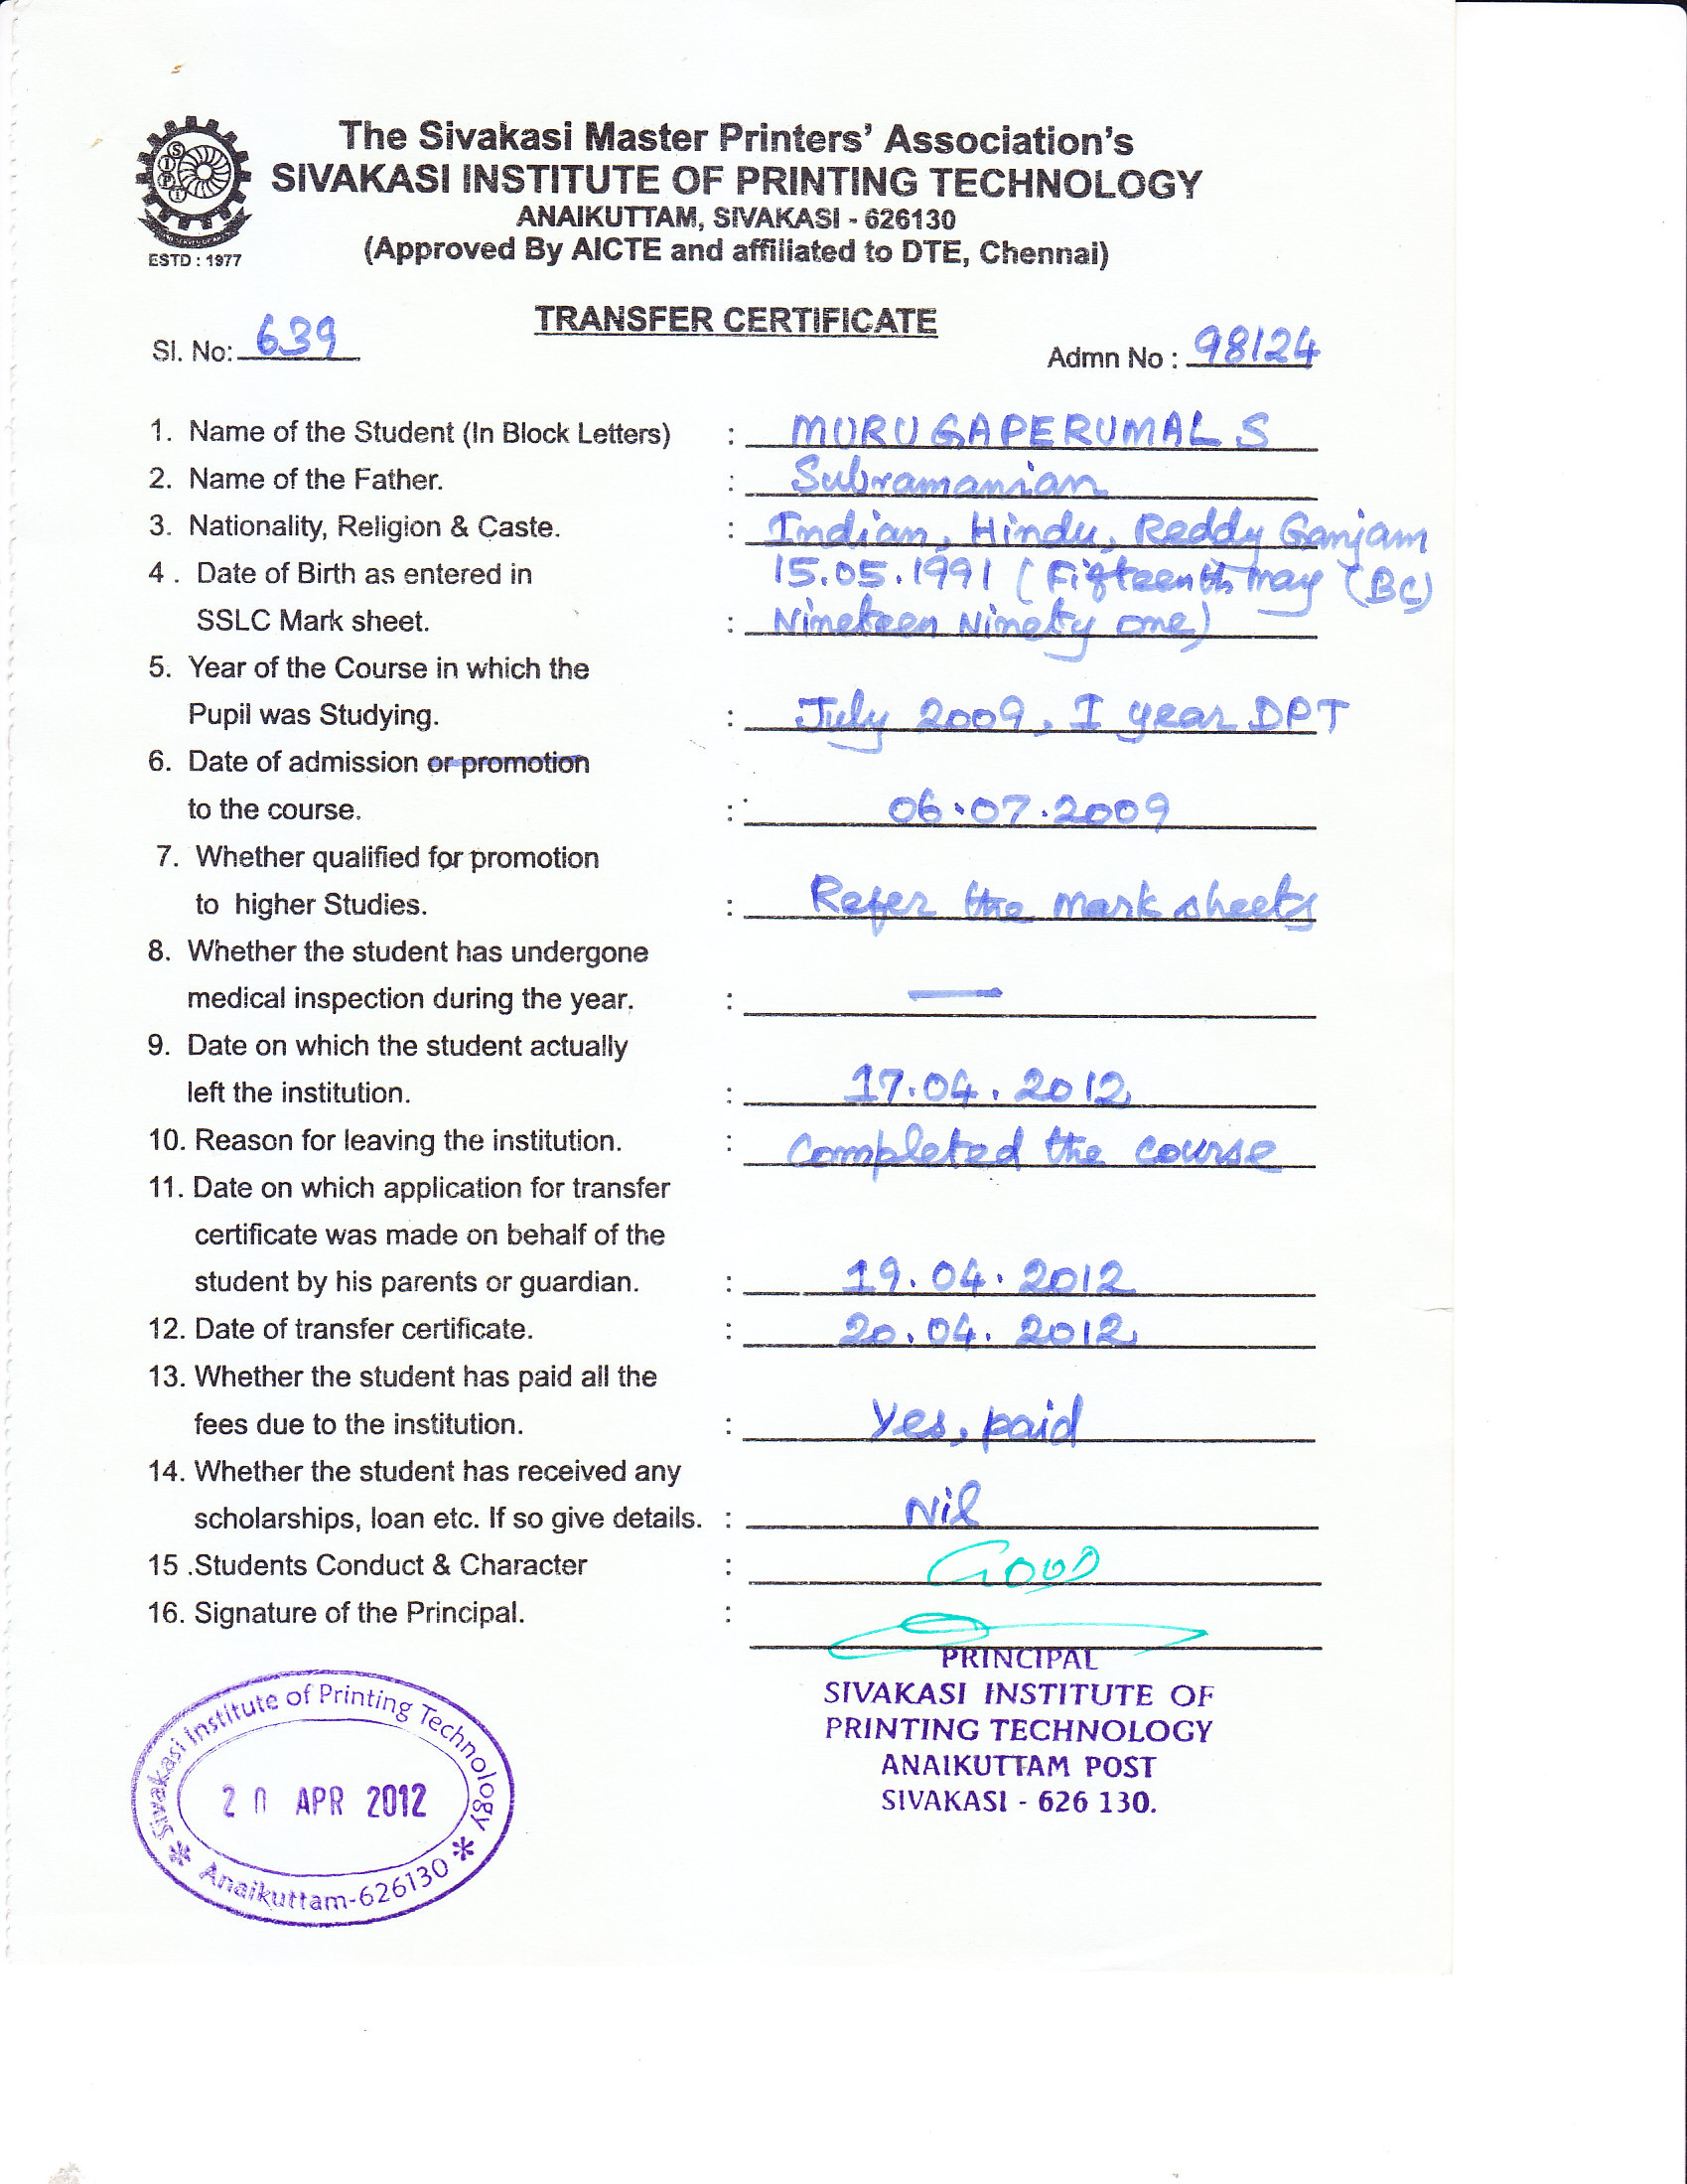 The Sivakasi Master Printers' Association's
SIVAKASI INSTITUTE OF PRINTING TECHNOLOGY
ANAIKUTTAM, SIVAKASI - 626130
(Approved By AICTE and affiliated to DTE, Chennai)
SIPT
ESTD : 1977
TRANSFER CERTIFICATE
Sl. No: 639
Admn No : 98124
1. Name of the Student (In Block Letters) : MURUGAPERUMAL S
2. Name of the Father. : Subramanian
3. Nationality, Religion & Caste. : Indian, Hindu, Reddy Ganjam
4 . Date of Birth as entered in 15.05.1991 (Fifteenth may (BC)
SSLC Mark sheet. : Nineteen Ninety one)
5. Year of the Course in which the
Pupil was Studying. : July 2009, I year DPT
6. Date of admission or promotion
to the course. : 06.07.2009
7. Whether qualified for promotion
to higher Studies. : Refer the mark sheets
8. Whether the student has undergone
medical inspection during the year. : —
9. Date on which the student actually
left the institution. : 17.04.2012
10. Reason for leaving the institution. : Completed the course
11. Date on which application for transfer
certificate was made on behalf of the
student by his parents or guardian. : 19.04.2012
12. Date of transfer certificate. : 20.04.2012
13. Whether the student has paid all the
fees due to the institution. : Yes, paid
14. Whether the student has received any
scholarships, loan etc. If so give details. : Nil
15 .Students Conduct & Character : GOOD
16. Signature of the Principal. :
PRINCIPAL
SIVAKASI INSTITUTE OF
PRINTING TECHNOLOGY
ANAIKUTTAM POST
SIVAKASI - 626 130.
Sivakasi Institute of Printing Technology
20 APR 2012
* Anaikuttam-626130 *